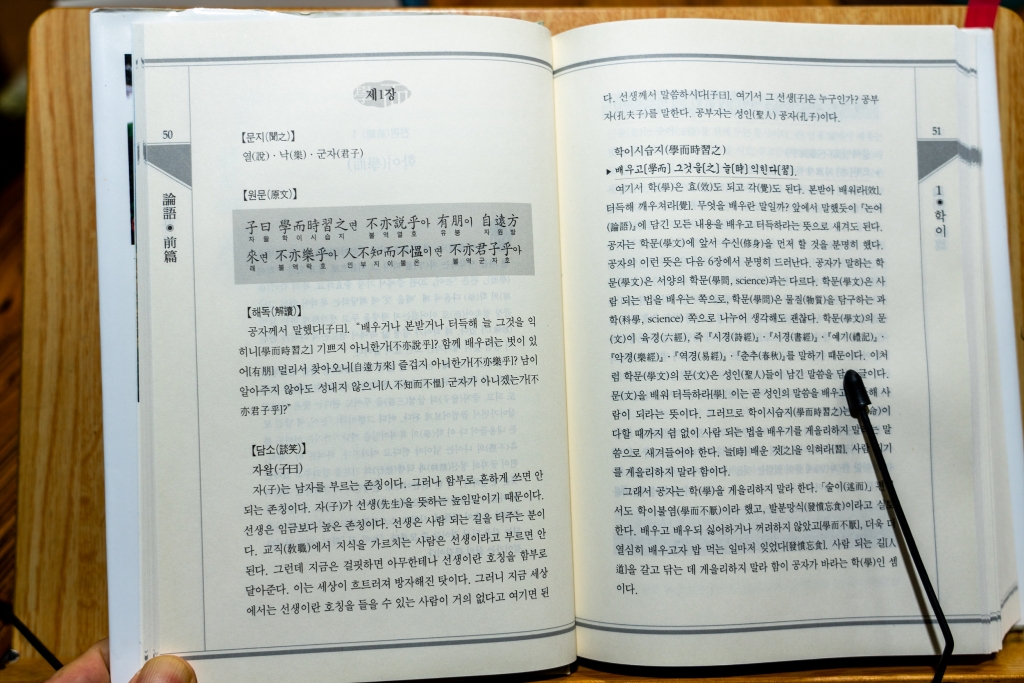 제1장
50
論語 ● 前篇
【문지(聞之)】
열(說)·낙(樂)·군자(君子)
【원문(原文)】
子曰 學而時習之면 不亦說乎아 有朋이 自遠方
자왈 학이시습지 불역열호 유붕 자원방
來면 不亦樂乎아 人不知而不慍이면 不亦君子乎아
래 불역락호 인부지이불온 불역군자호
【해독(解讀)】
공자께서 말했다[子曰]. “배우거나 본받거나 터득해 늘 그것을 익
히니[學而時習之] 기쁘지 아니한가[不亦說乎]? 함께 배우려는 벗이 있
어[有朋] 멀리서 찾아오니[自遠方來] 즐겁지 아니한가[不亦樂乎]? 남이
알아주지 않아도 성내지 않으니[人不知而不慍] 군자가 아니겠는가[不
亦君子乎]?”
【담소(談笑)】
자왈(子曰)
자(子)는 남자를 부르는 존칭이다. 그러나 함부로 흔하게 쓰면 안
되는 존칭이다. 자(子)가 선생(先生)을 뜻하는 높임말이기 때문이다.
선생은 임금보다 높은 존칭이다. 선생은 사람 되는 길을 터주는 분이
다. 교직(敎職)에서 지식을 가르치는 사람은 선생이라고 부르면 안
된다. 그런데 지금은 걸핏하면 아무한테나 선생이란 호칭을 함부로
달아준다. 이는 세상이 흐트러져 방자해진 탓이다. 그러니 지금 세상
에서는 선생이란 호칭을 들을 수 있는 사람이 거의 없다고 여기면 된
다. 선생께서 말씀하시다[子曰]. 여기서 그 선생[子]은 누구인가? 공부
자(孔夫子)를 말한다. 공부자는 성인(聖人) 공자(孔子)이다.
학이시습지(學而時習之)
▶ 배우고[學而] 그것을[之] 늘[時] 익힌다[習].
여기서 학(學)은 효(效)도 되고 각(覺)도 된다. 본받아 배워라[效].
터득해 깨우쳐라[覺]. 무엇을 배우란 말일까? 앞에서 말했듯이 『논어
(論語)』에 담긴 모든 내용을 배우고 터득하라는 뜻으로 새겨도 된다.
공자는 학문(學文)에 앞서 수신(修身)을 먼저 할 것을 분명히 했다.
공자의 이런 뜻은 다음 6장에서 분명히 드러난다. 공자가 말하는 학
문(學文)은 서양의 학문(學問, science)과는 다르다. 학문(學文)은 사
람 되는 법을 배우는 쪽으로, 학문(學問)은 물질(物質)을 탐구하는 과
학(科學, science) 쪽으로 나누어 생각해도 괜찮다. 학문(學文)의 문
(文)이 육경(六經), 즉 『시경(詩經)』·『서경(書經)』·『예기(禮記)』·
『악경(樂經)』·『역경(易經)』·『춘추(春秋)』를 말하기 때문이다. 이처
럼 학문(學文)의 문(文)은 성인(聖人)들이 남긴 말씀을 글이다.
문(文)을 배워 터득하라[學]. 이는 곧 성인의 말씀을 배우고 사
람이 되라는 뜻이다. 그러므로 학이시습지(學而時習之)는
다할 때까지 쉼 없이 사람 되는 법을 배우기를 게을리하지 말
씀으로 새겨들어야 한다. 늘[時] 배운 것[之]을 익혀라[習]. 사람
를 게을리하지 말라 함이다.
그래서 공자는 학(學)을 게을리하지 말라 한다. 「술이(述而)」
서도 학이불염(學而不厭)이라 했고, 발분망식(發憤忘食)이라고
한다. 배우고 배우되 싫어하거나 꺼려하지 않았고[學而不厭], 더욱
열심히 배우고자 밥 먹는 일마저 잊었다[發憤忘食]. 사람 되는 길[人
道]을 갈고 닦는 데 게을리하지 말라 함이 공자가 바라는 학(學)인 셈
이다.
51
1 ● 학이